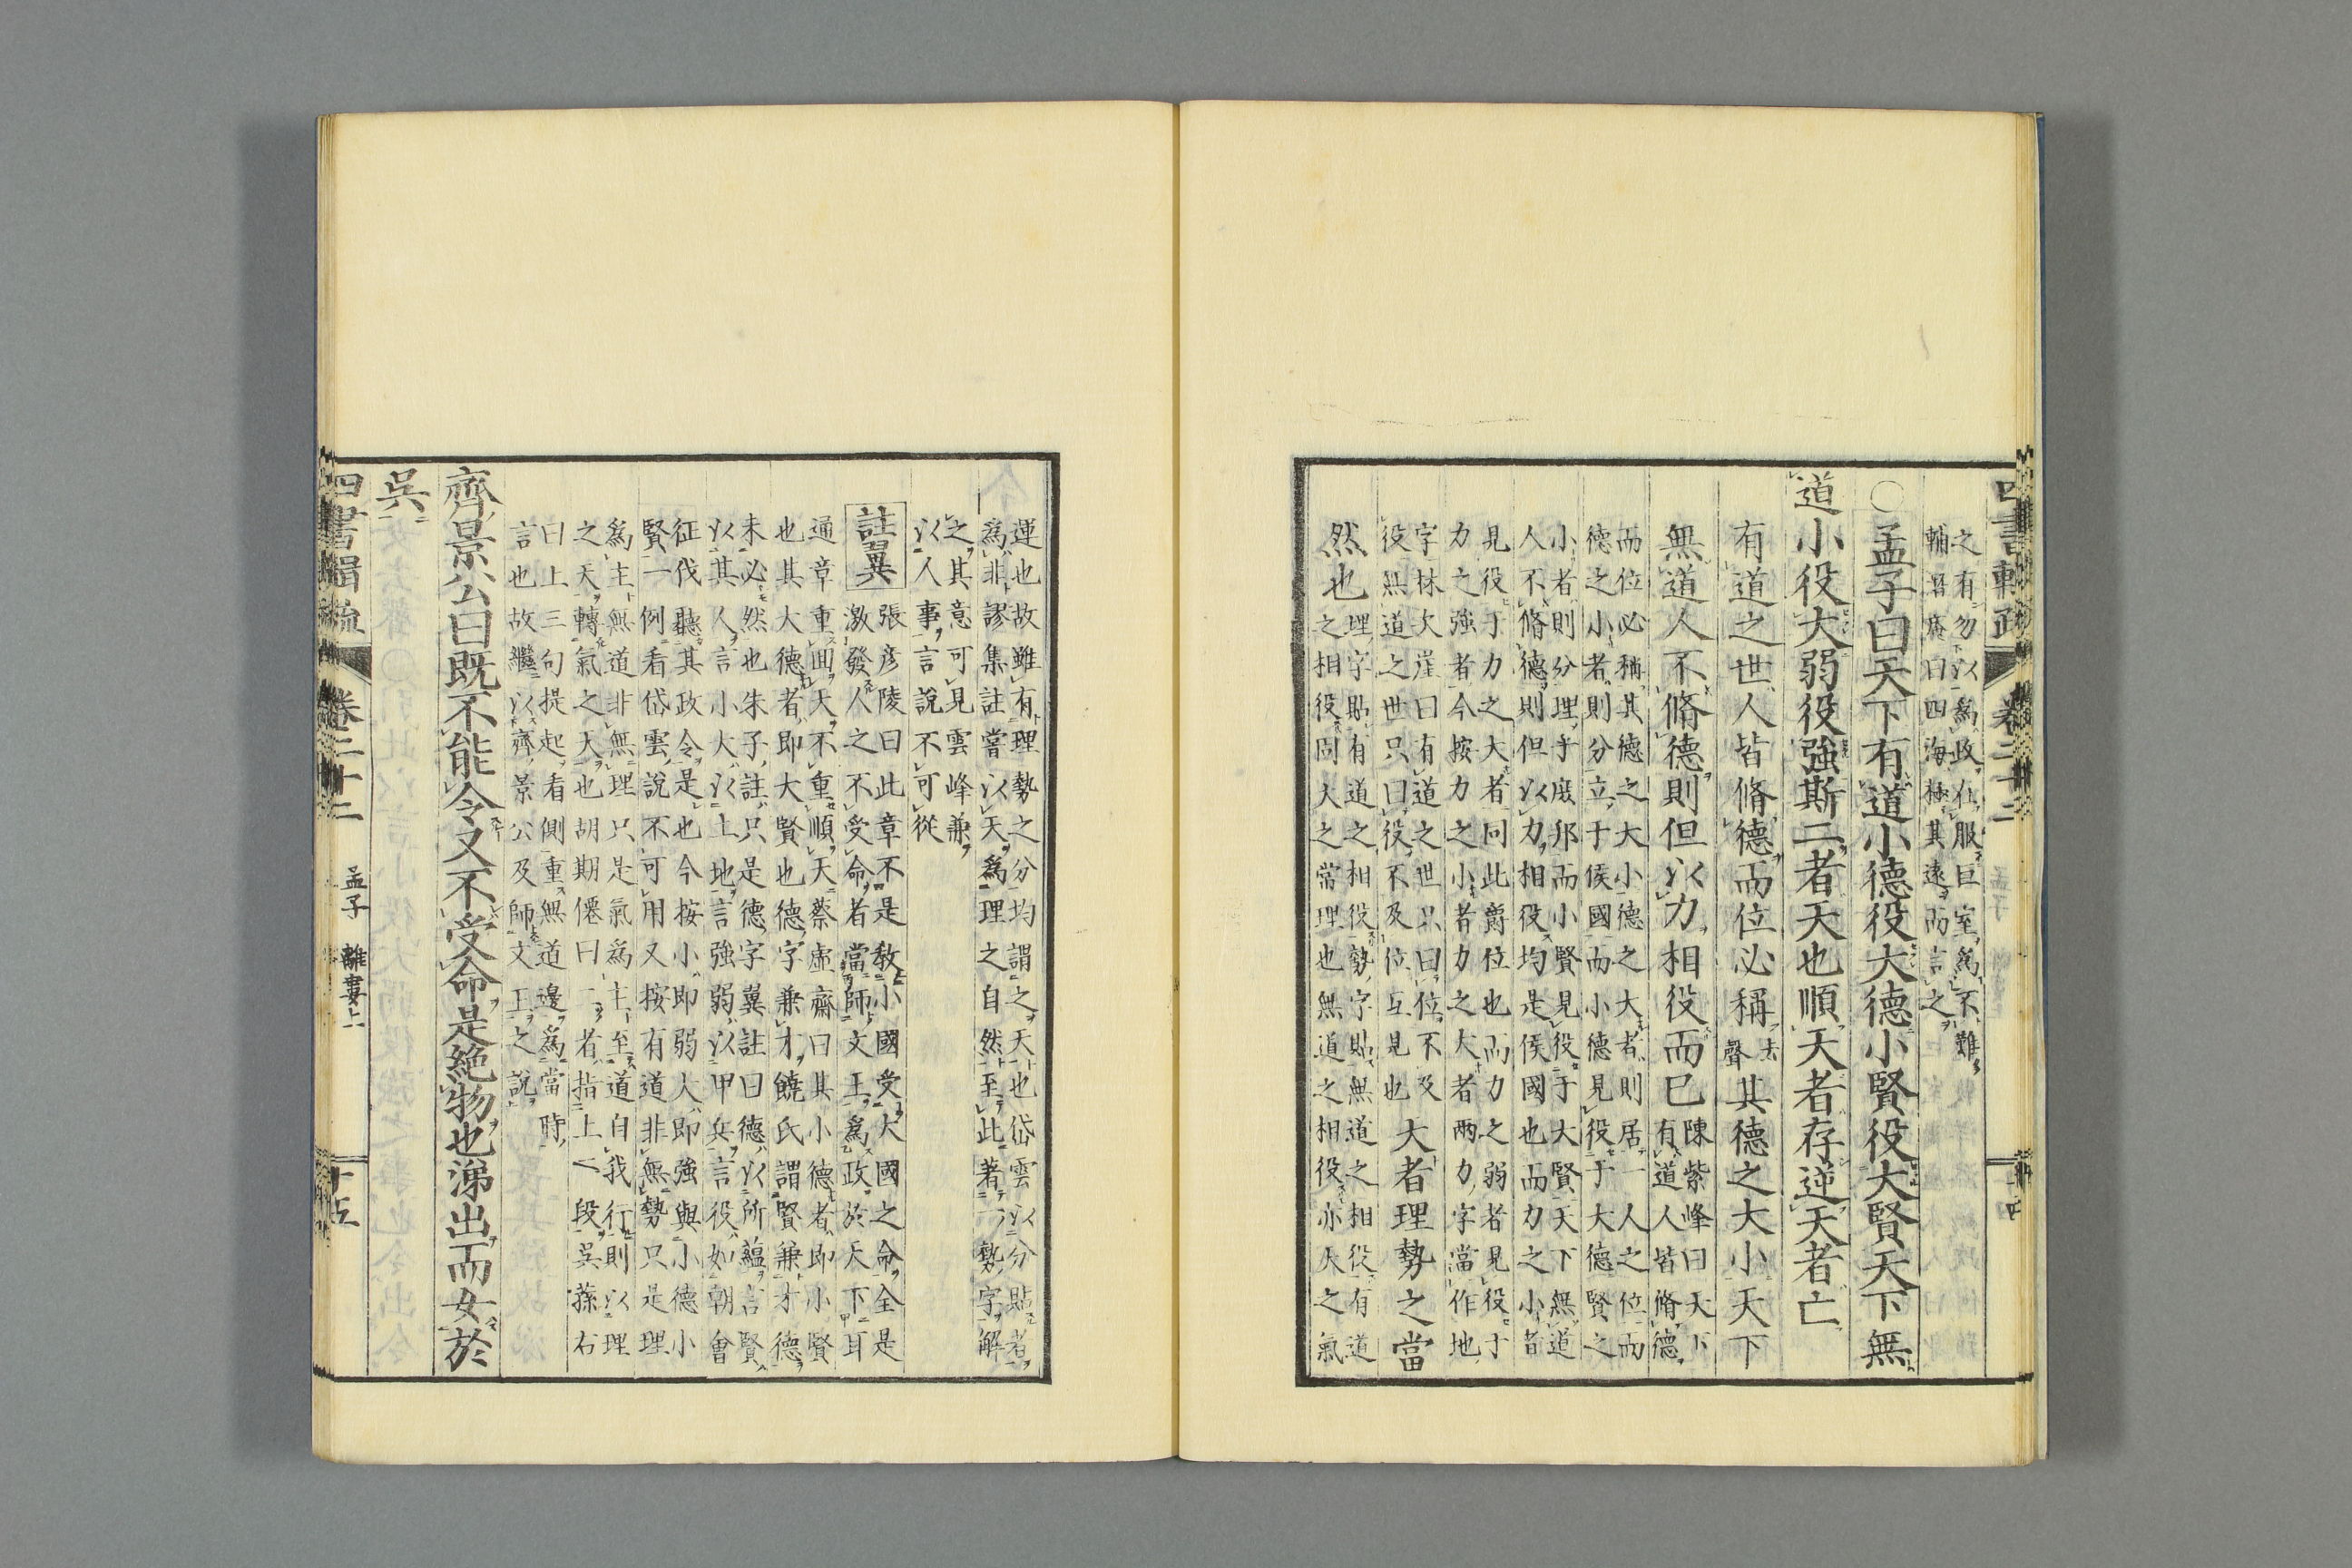 之有勿以爲政在服巨室爲不難
輔潛庵曰四海極其遠而言之
○孟子曰天下有道小德役大德小賢役大賢天下無
道小役大弱役強斯二者天也順天者存逆天者亡
有道之世人皆脩德而位必稱去聲其德之大小天下
無道人不脩德則但以力相役而已
陳紫峰曰天下
有道人皆脩德
而位必稱其德之大小德之大者則居一人之位而
德之小者則分立于侯國而小德見役于大德賢之
小者則分理乎庶邦而小賢見役于大賢天下無道
人不脩德則但以力相役均是侯國也而力之小者
見役于力之大者同此爵位也而力之弱者見役于
力之強者今按力之小者力之大者兩力字當作地
字林次崖曰有道之世只曰位不及
役無道之世只曰役不及位互見也
大者理勢之當
然也
理字貼有道之相役勢字貼無道之相役有道
之相役固大之常理也無道之相役亦天之氣
運也故雖有理勢之分均謂之天也岱雲以分貼者
爲非謬集註嘗以天爲理之自然至此著一勢字解
之其意可見雲峰兼
以人事言說不可從
註翼
張彦陵曰此章不是教小國受大國之命全是
激發人之不受命者當師文王爲政於天下耳
通章重囬天不重順天蔡虛齋曰其小德者即小賢
也其大德者即大賢也德字兼才饒氏謂賢兼才德
未必然也朱子註只是德字翼註曰德以所蘊言賢
以其人言小大以土地言強弱以甲兵言役如朝會
征伐聽其政令是也今按小即弱大即強與小德小
賢一例看岱雲說不可用又按有道非無勢只是理
爲主無道非無理只是氣爲主至道自我行則以理
之天轉氣之天也胡期僊曰二者指上一段吳蓀右
曰上三句提起看側重無道邊爲當時
言也故繼以齊景公及師文王之說
齊景公曰既不能令又不受命是絶物也涕出而女於
吳
四書輯疏
卷二十二
孟子 離婁上
十五